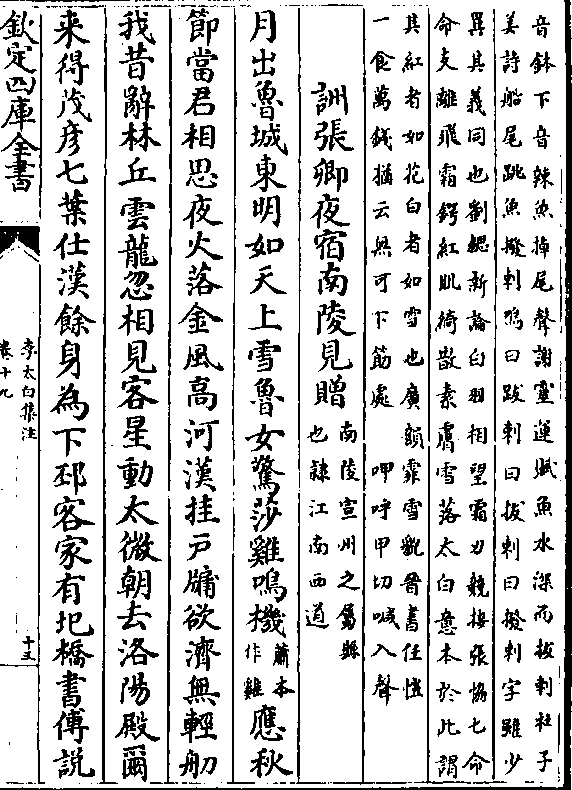 音鉢下音辣魚掉尾聲謝靈運賦魚水深而拔剌杜子
美詩船尾跳魚撥剌鳴曰跋剌曰拔剌曰撥剌字雖少
異其義同也劉勰新論白羽相望霜刃競接張協七命
命支離飛霜鍔紅肌綺散素膚雪落太白意本於此謂
其紅者如花白者如雪也廣韻霏雪貌晉書任愷
一食萬錢猶云無可下筯處 呷呼甲切喊入聲
詶張卿夜宿南陵見贈南陵宣州之屬縣也隸江南西道
月出魯城東明如天上雪魯女驚莎雞鳴機蕭本作雞應秋
節當君相思夜火落金風高河漢挂戶牖欲濟無輕舠
我昔辭林丘雲龍忽相見客星動太微朝去洛陽殿爾
来得茂彦七葉仕漢餘身為下邳客家有圯橋書傅説
欽定四庫全書
李太白集注
卷十九
十五